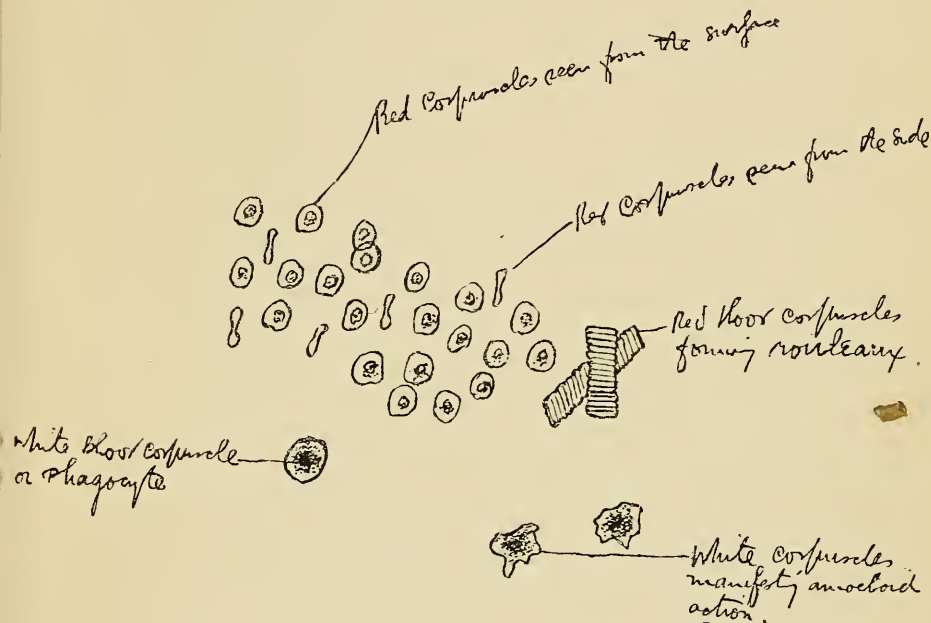 Red Corpuscles seen from the surface
Red Corpuscles seen from the side
Red Bloor corpuscles
forming rouleaux.
White Bloor corpuscle
or Phagocyte
White corpuscles
manifestg amoeboid
action